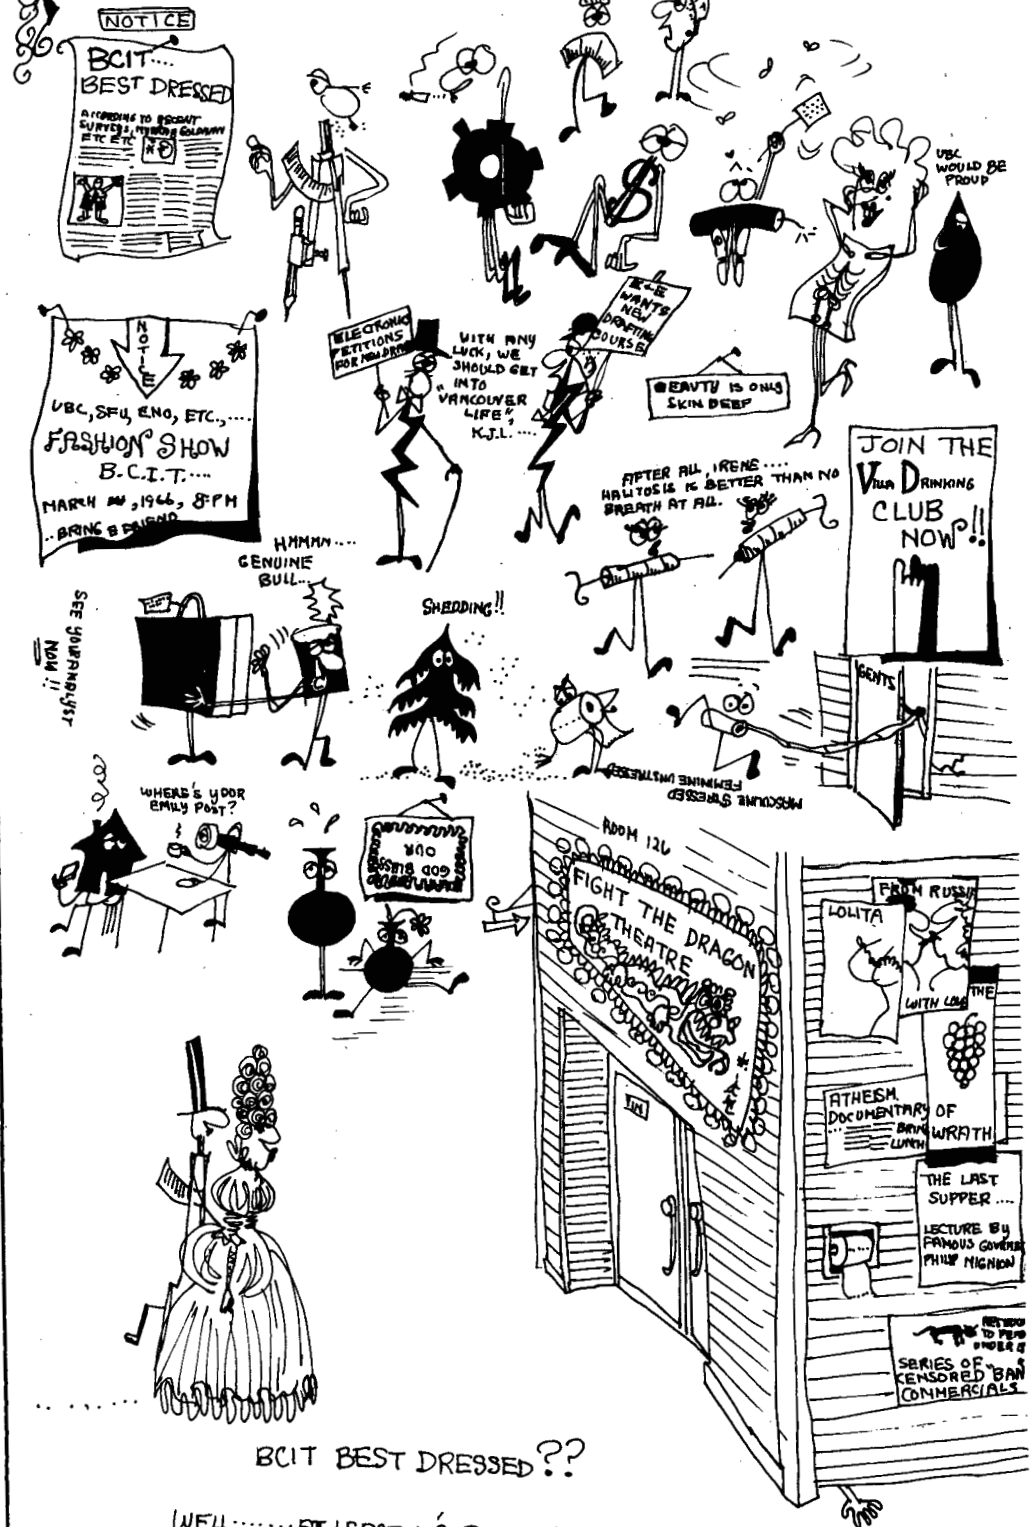 NOTICE
BCIT....
BEST DRESSED
ACCORDING TO RECENT
SURVEYS,
ETC ETC
UBC
WOULD BE
PROUD
NOTICE
UBC, SFU, ENG, ETC,....
FASHION SHOW
B.C.I.T....
MARCH 1966, 8:PM
..BRING A FRIEND
ELECTRONIC
PETITIONS
FOR NEW
WITH ANY
LUCK, WE
SHOULD GET
INTO
"VANCOUVER
LIFE",
K.J.L....
E&E
WANTS
NEW
DRAFTING
COURSE
BEAUTY IS ONLY
SKIN DEEP
AFTER ALL, IRENE....
HALITOSIS IS BETTER THAN NO
BREATH AT ALL.
JOIN THE
VILLA DRINKING
CLUB
NOW!!
HMMMM....
GENUINE
BULL...
SEE YOUR ANALYST
NOW!!
SHEDDING!!
GENTS
MASCULINE STRESSED
FEMININE UNSTRESSED
WHERE'S YOUR
EMILY POST?
GOD BLESS
OUR
ROOM 126
FIGHT THE DRAGON
THEATRE
LOLITA
FROM RUSSIA
WITH LOVE
THE
WRATH
ATHEISM
DOCUMENTARY OF
... BRING
LUNCH
THE LAST
SUPPER....
LECTURE BY
FAMOUS
PHILIP MIGNION
SERIES OF
CENSORED "BAN
COMMERCIALS
BCIT BEST DRESSED??